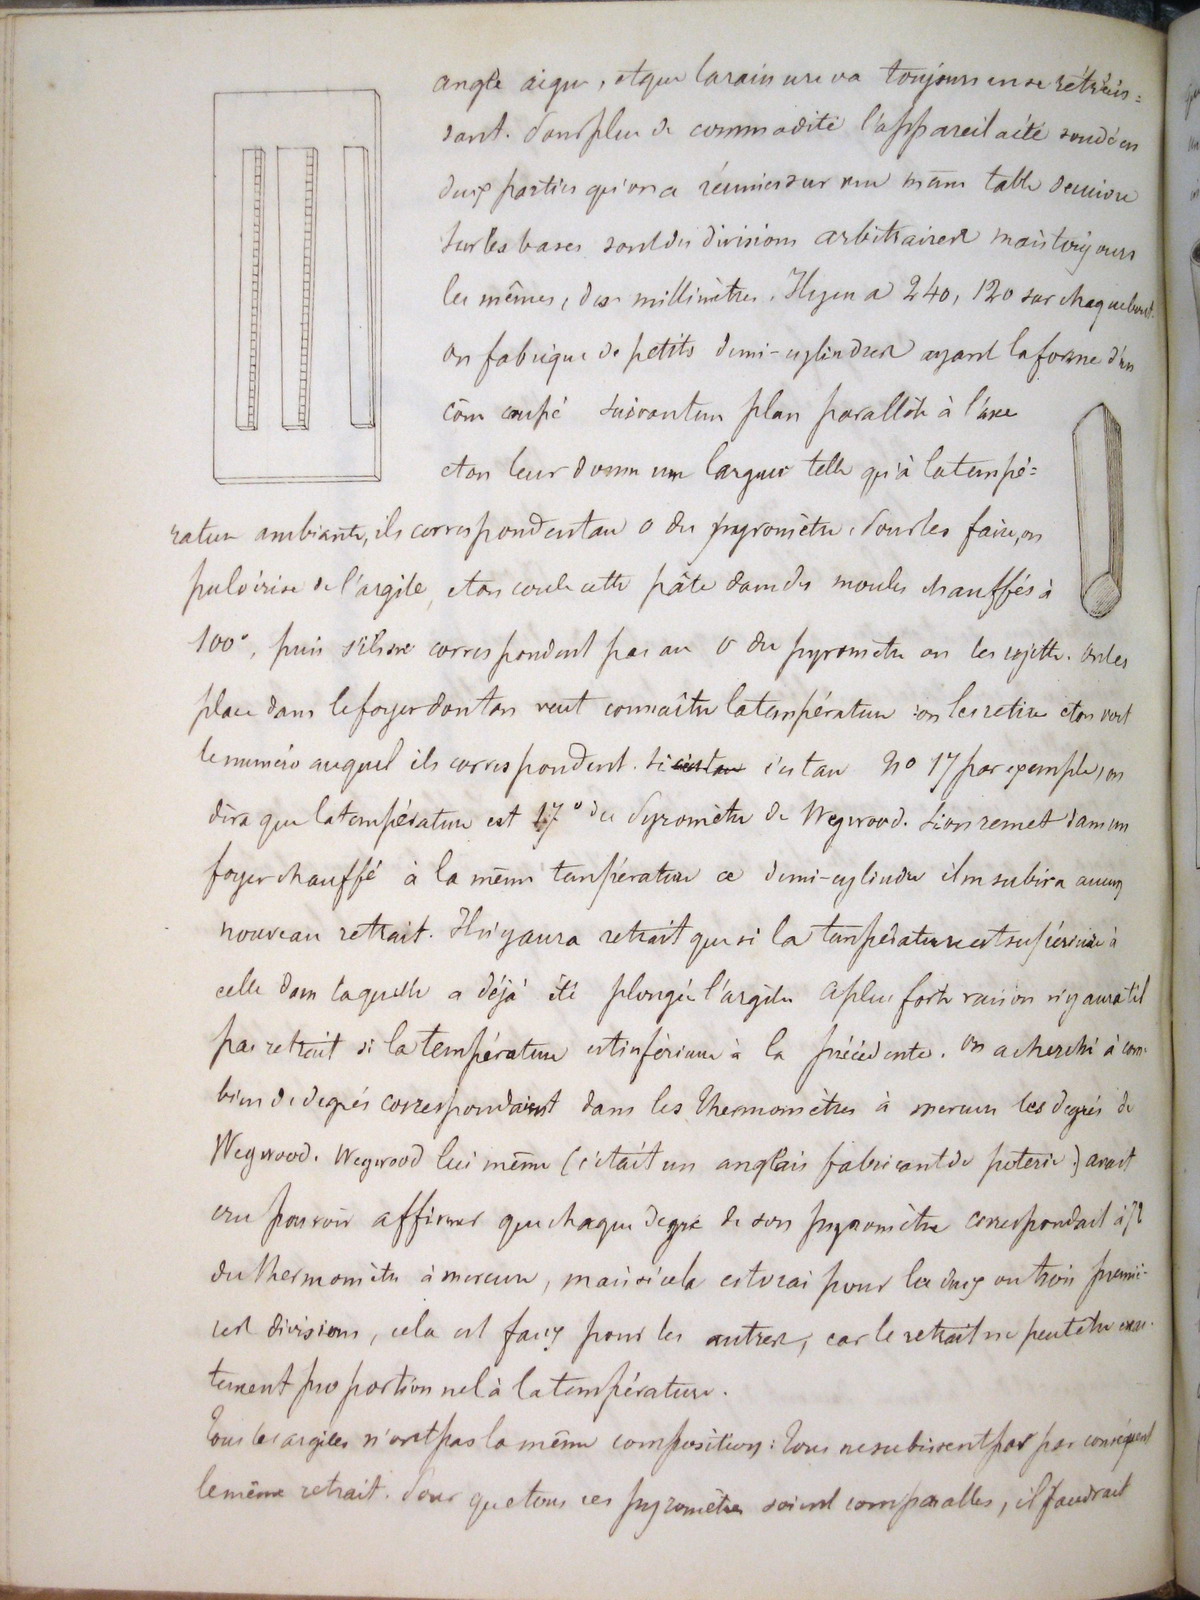 angle aigu, et que la rainure va toujours en se rétrécis=
sant. Pour plus de commodité l'appareil a été soudé en
deux parties qu'on a réunies sur une même table de cuivre
sur les bases sont des divisions arbitraires mais toujours
les mêmes, des millimètres. Il y en a 240, 120 sur chaque bord.
on fabrique de petits demi-cylindres ayant la forme d'un
cône coupé suivant un plan parallèle à l'axe
et on leur donne une largeur telle qu'à la tempé=
rature ambiante, ils correspondent au 0 du pyromètre. Pour les faire, on
pulvérise de l'argile, et on coule cette pâte dans des moules chauffés à
100°, puis s'ils ne correspondent pas au 0 du pyromètre on les rejette. on les
place dans le foyer dont on veut connaître la température : on les retire et on voit
le numéro auquel ils correspondent. Si c'est au n° 17 par exemple, on
dira que la température est 17° du Pyromètre de Wegwood. Si on remet dans un
foyer chauffé à la même température ce demi-cylindre il ne subira aucun
nouveau retrait. Il n'y aura retrait que si la température est supérieure à
celle dans laquelle a déjà été plongée l'argile A plus forte raison n'y aura-t-il
pas retrait si la température est inférieure à la précédente. On a cherché à com-
bien de degrés correspondaient dans les thermomètres à mercure les degrés de
Wegwood. Wegwood lui même (c'était un anglais fabricant de poterie) avait
cru pouvoir affirmer que chaque degré de son pyromètre correspondait à 72
du thermomètre à mercure, mais si cela est vrai pour les deux ou trois premiè-
res divisions, cela est faux pour les autres, car le retrait ne peut être exac-
tement proportionnel à la température.
Tous les argiles n'ont pas la même composition : tous ne subissent pas par conséquent
le même retrait. Pour que tous ces pyromètres soient comparables, il faudrait